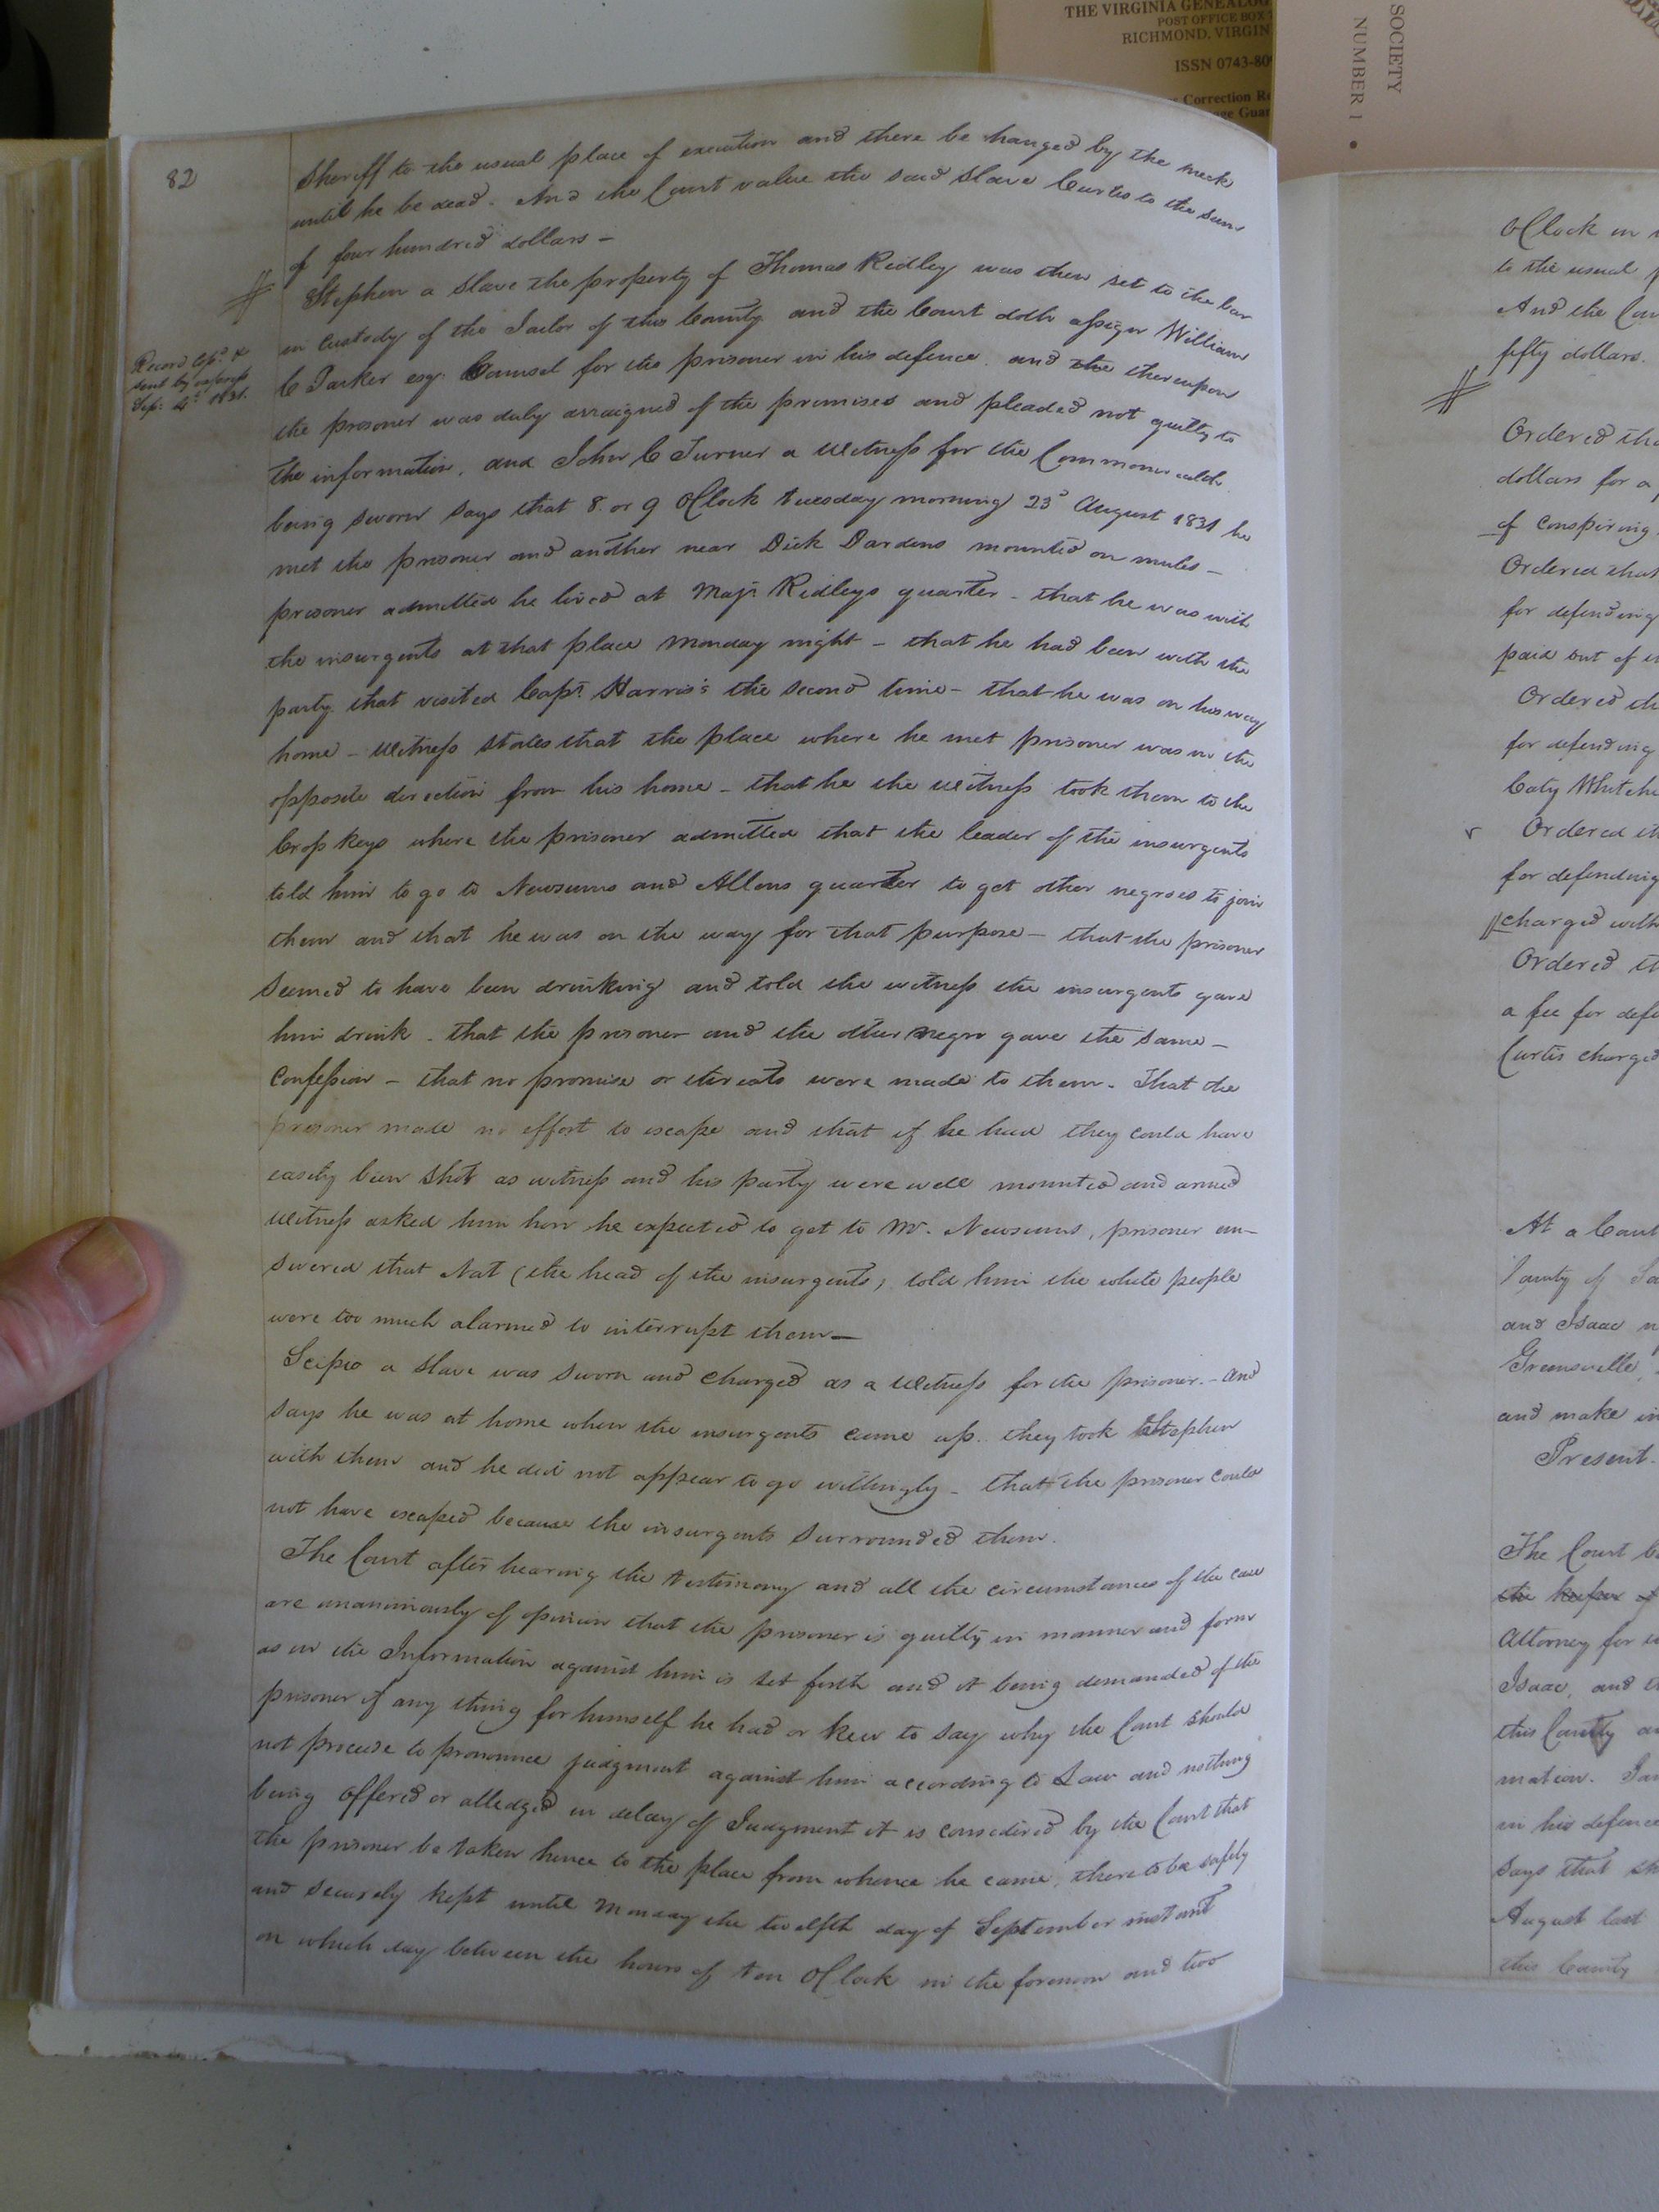 THE VIRGINIA GENEALOG
POST OFFICE BOX 7
RICHMOND, VIRGIN
ISSN 0743-809
Correction Re
ge Guar
SOCIETY
NUMBER 1 •
82
Sheriff to the usual place of execution and there be hanged by the neck
until he be dead. And the Court value the said Slave Curtis to the sum
of four hundred dollars –
Stephen a Slave the property of Thomas Ridley was then set to the bar
in custody of the Jailor of this County and the Court doth assign William
C Parker esq. Counsel for the prisoner in his defence. and the thereupon
the prisoner was duly arraigned of the premises and pleaded not guilty to
the information. and John C Turner a Witness for the Commonwealth
being sworn says that 8. or 9 OClock tuesday morning 23d August 1831 he
met the prisoner and another near Dick Dardens mounted on mules –
prisoner admitted he lived at Majr Ridleys quarter – that he was with
the insurgents at that place Monday night – that he had been with the
party that visited Capt Harris's the second time – that he was on his way
home – Witness States that the place where he met prisoner was in the
opposite direction from his home – that he the Witness took them to the
Cross keys where the prisoner admitted that the leader of the insurgents
told him to go to Newsums and Allens quarter to get other negroes to join
them and that he was on the way for that purpose – that the prisoner
Seemed to have been drinking and told the witness the insurgents gave
him drink – that the prisoner and the other negro gave the same –
Confession – that no promise or threats were made to them. That the
prisoner made no effort to escape and that if he had they could have
easily been shot as witness and his party were well mounted and armed
Witness asked him how he expected to get to Mr. Newsums, prisoner an-
swered that Nat (the head of the insurgents) told him the white people
were too much alarmed to interrupt them –
Scipio a Slave was Sworn and Charged as a Witness for the prisoner. – and
says he was at home when the insurgents came up. they took Stephen
with them and he did not appear to go willingly – that the prisoner could
not have escaped because the insurgents Surrounded them.
The Court after hearing the testimony and all the circumstances of the case
are unanimously of opinion that the prisoner is guilty in manner and form
as in the Information against him is set forth and it being demanded of the
prisoner if any thing for himself he had or kew to say why the Court should
not procede to pronounce judgment against him according to Law and nothing
being offered or alledged in delay of Judgment it is considered by the Court that
the prisoner be taken hence to the place from whence he came, there to be safely
and securely kept until Monday the twelfth day of September instant
on which day between the hours of ten OClock in the forenoon and two
Record Cop.d &
sent by express
Sep: 4th 1831.
OClock in
to the usual
And the Cou
fifty dollars.
Ordered tha
dollars for a
of Conspiring
Ordered that
for defending
paid out of
Ordered th
for defending
Caty Whitehe
Ordered th
for defending
charged with
Ordered th
a fee for defe
Curtis charged
At a Cou
County of So
and Isaac
Greensville
and make in
Present.
The Court b
the keeper of
Attorney for
Isaac, and
this County a
mation.
in his defence
says that sh
August last
this County